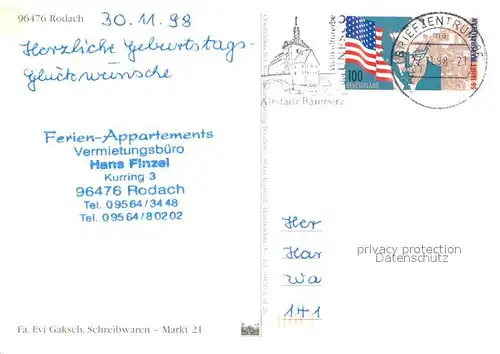 96476 Rodach
30.11.98
Herzliche Geburtstags-
Glückwünsche
Ferien-Appartements
Vermietungsbüro
Hans Finzel
Kurring 3
96476 Rodach
Tel. 09564/3448
Tel. 09564/80202
Fa. Evi Gaksch, Schreibwaren – Markt 21
Altstadt Bamberg
100
DEUTSCHLAND
BRIEFZENTRUM 96
50 JAHRE MARSHALLPLAN
Her
Har
Wa
141
privacy protection
Oldthing.de